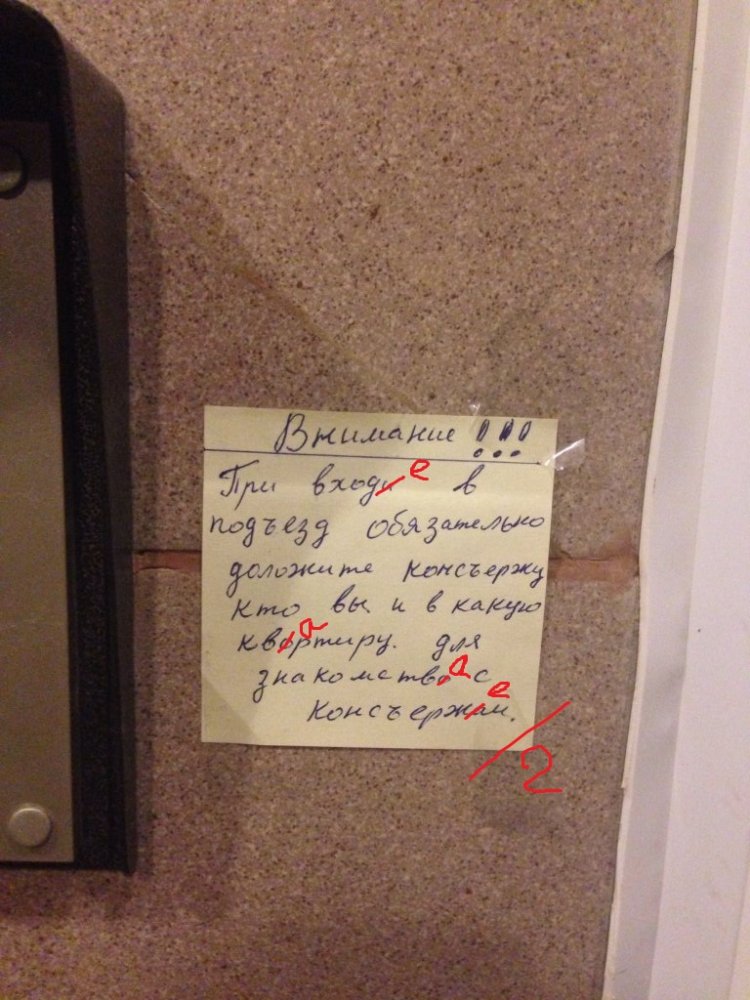 Внимание !!!
При входи е в
подъезд обязательно
доложите консъержу
кто вы и в какую
квортиру. а для
знакомство а с
консъержам. е
2